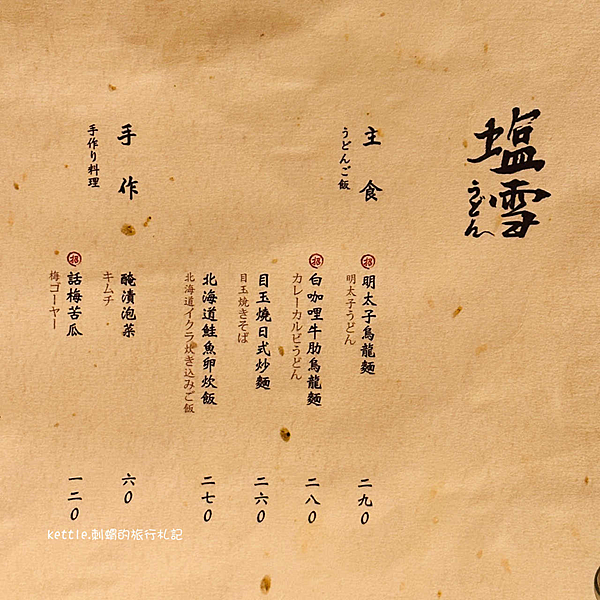 塩雪
うどん
主食
うどんご飯
招
明太子烏龍麵
明太子うどん
二九0
招
白咖哩牛肋烏龍麵
カレーカルビうどん
二八0
目玉燒日式炒麵
目玉焼きそば
二六0
北海道鮭魚卵炊飯
北海道イクラ炊き込みご飯
二七0
手作
手作り料理
醃漬泡菜
キムチ
六0
招
話梅苦瓜
梅ゴーヤー
一二0
kettle.刺蝟的旅行札記